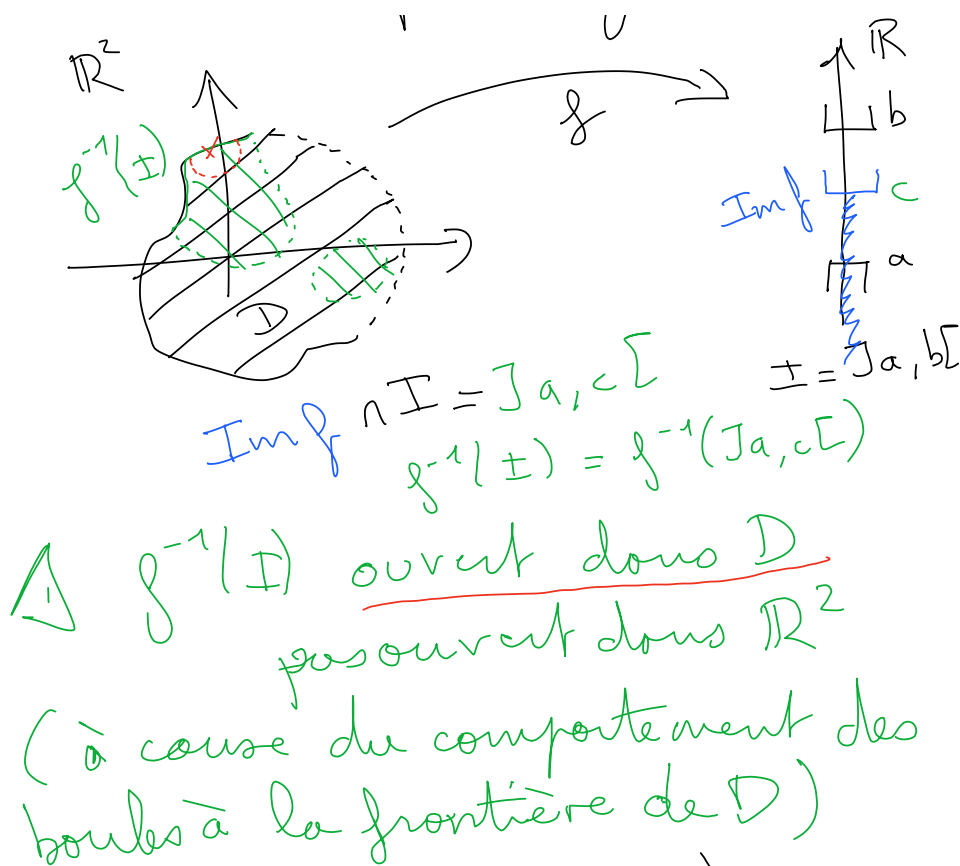 ℝ²
ℝ
f
b
f⁻¹(I)
Im f
c
a
D
I = ]a, b[
Im f ∩ I = ]a, c[
f⁻¹(I) = f⁻¹(]a, c[)
⚠ f⁻¹(I) ouvert dans D
pas ouvert dans ℝ²
(à cause du comportement des
boules à la frontière de D)